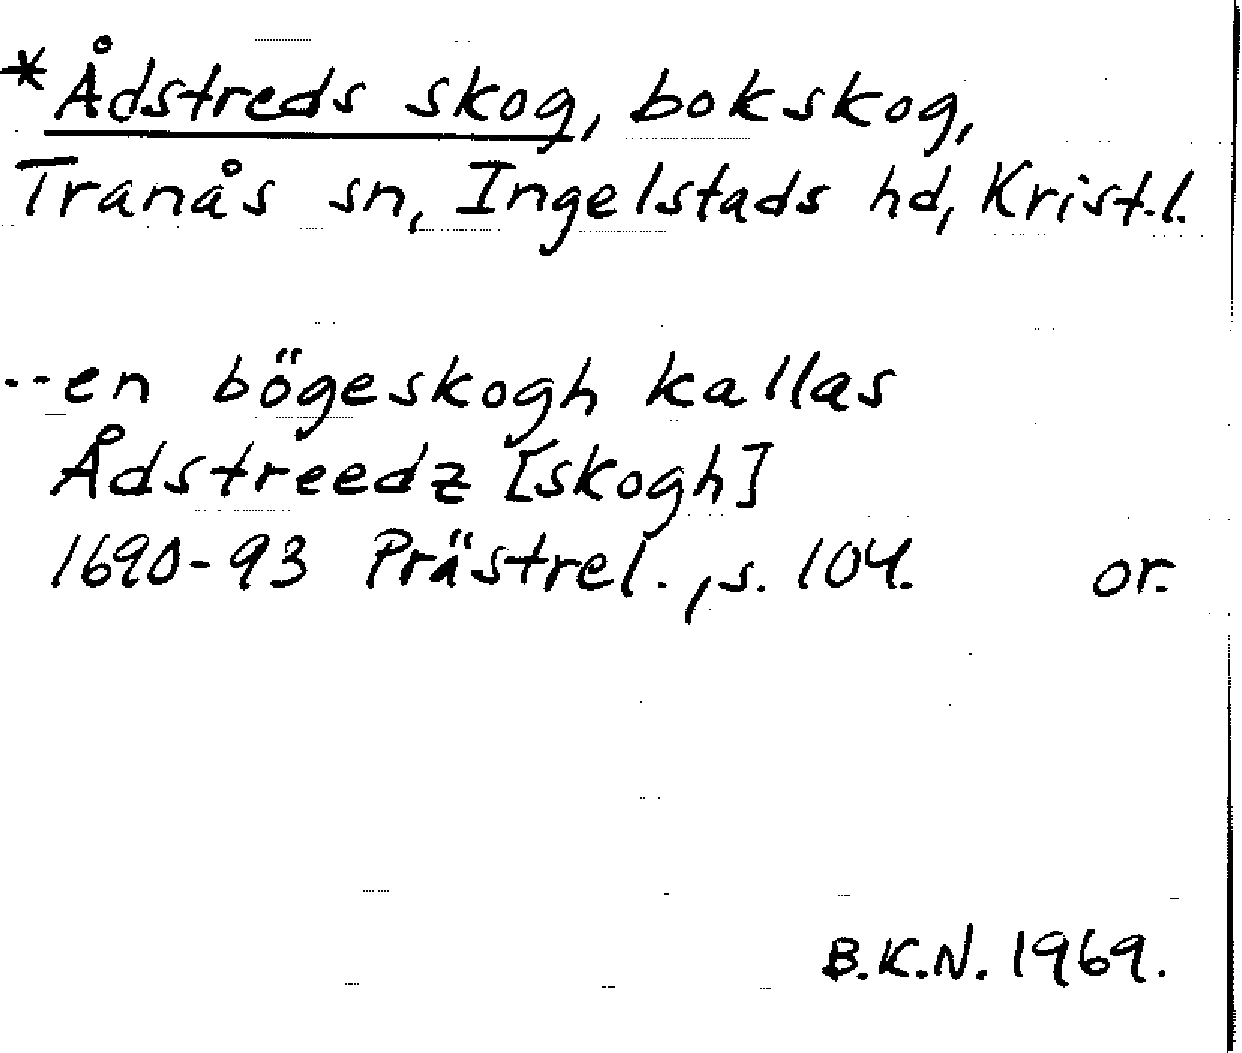 *Ådstreds skog, bokskog,
Tranås sn, Ingelstads hd, Krist.l.
--en bögeskogh kallas
Ådstreedz [skogh]
1690-93 Prästrel., s. 104. or.
B.K.N. 1969.